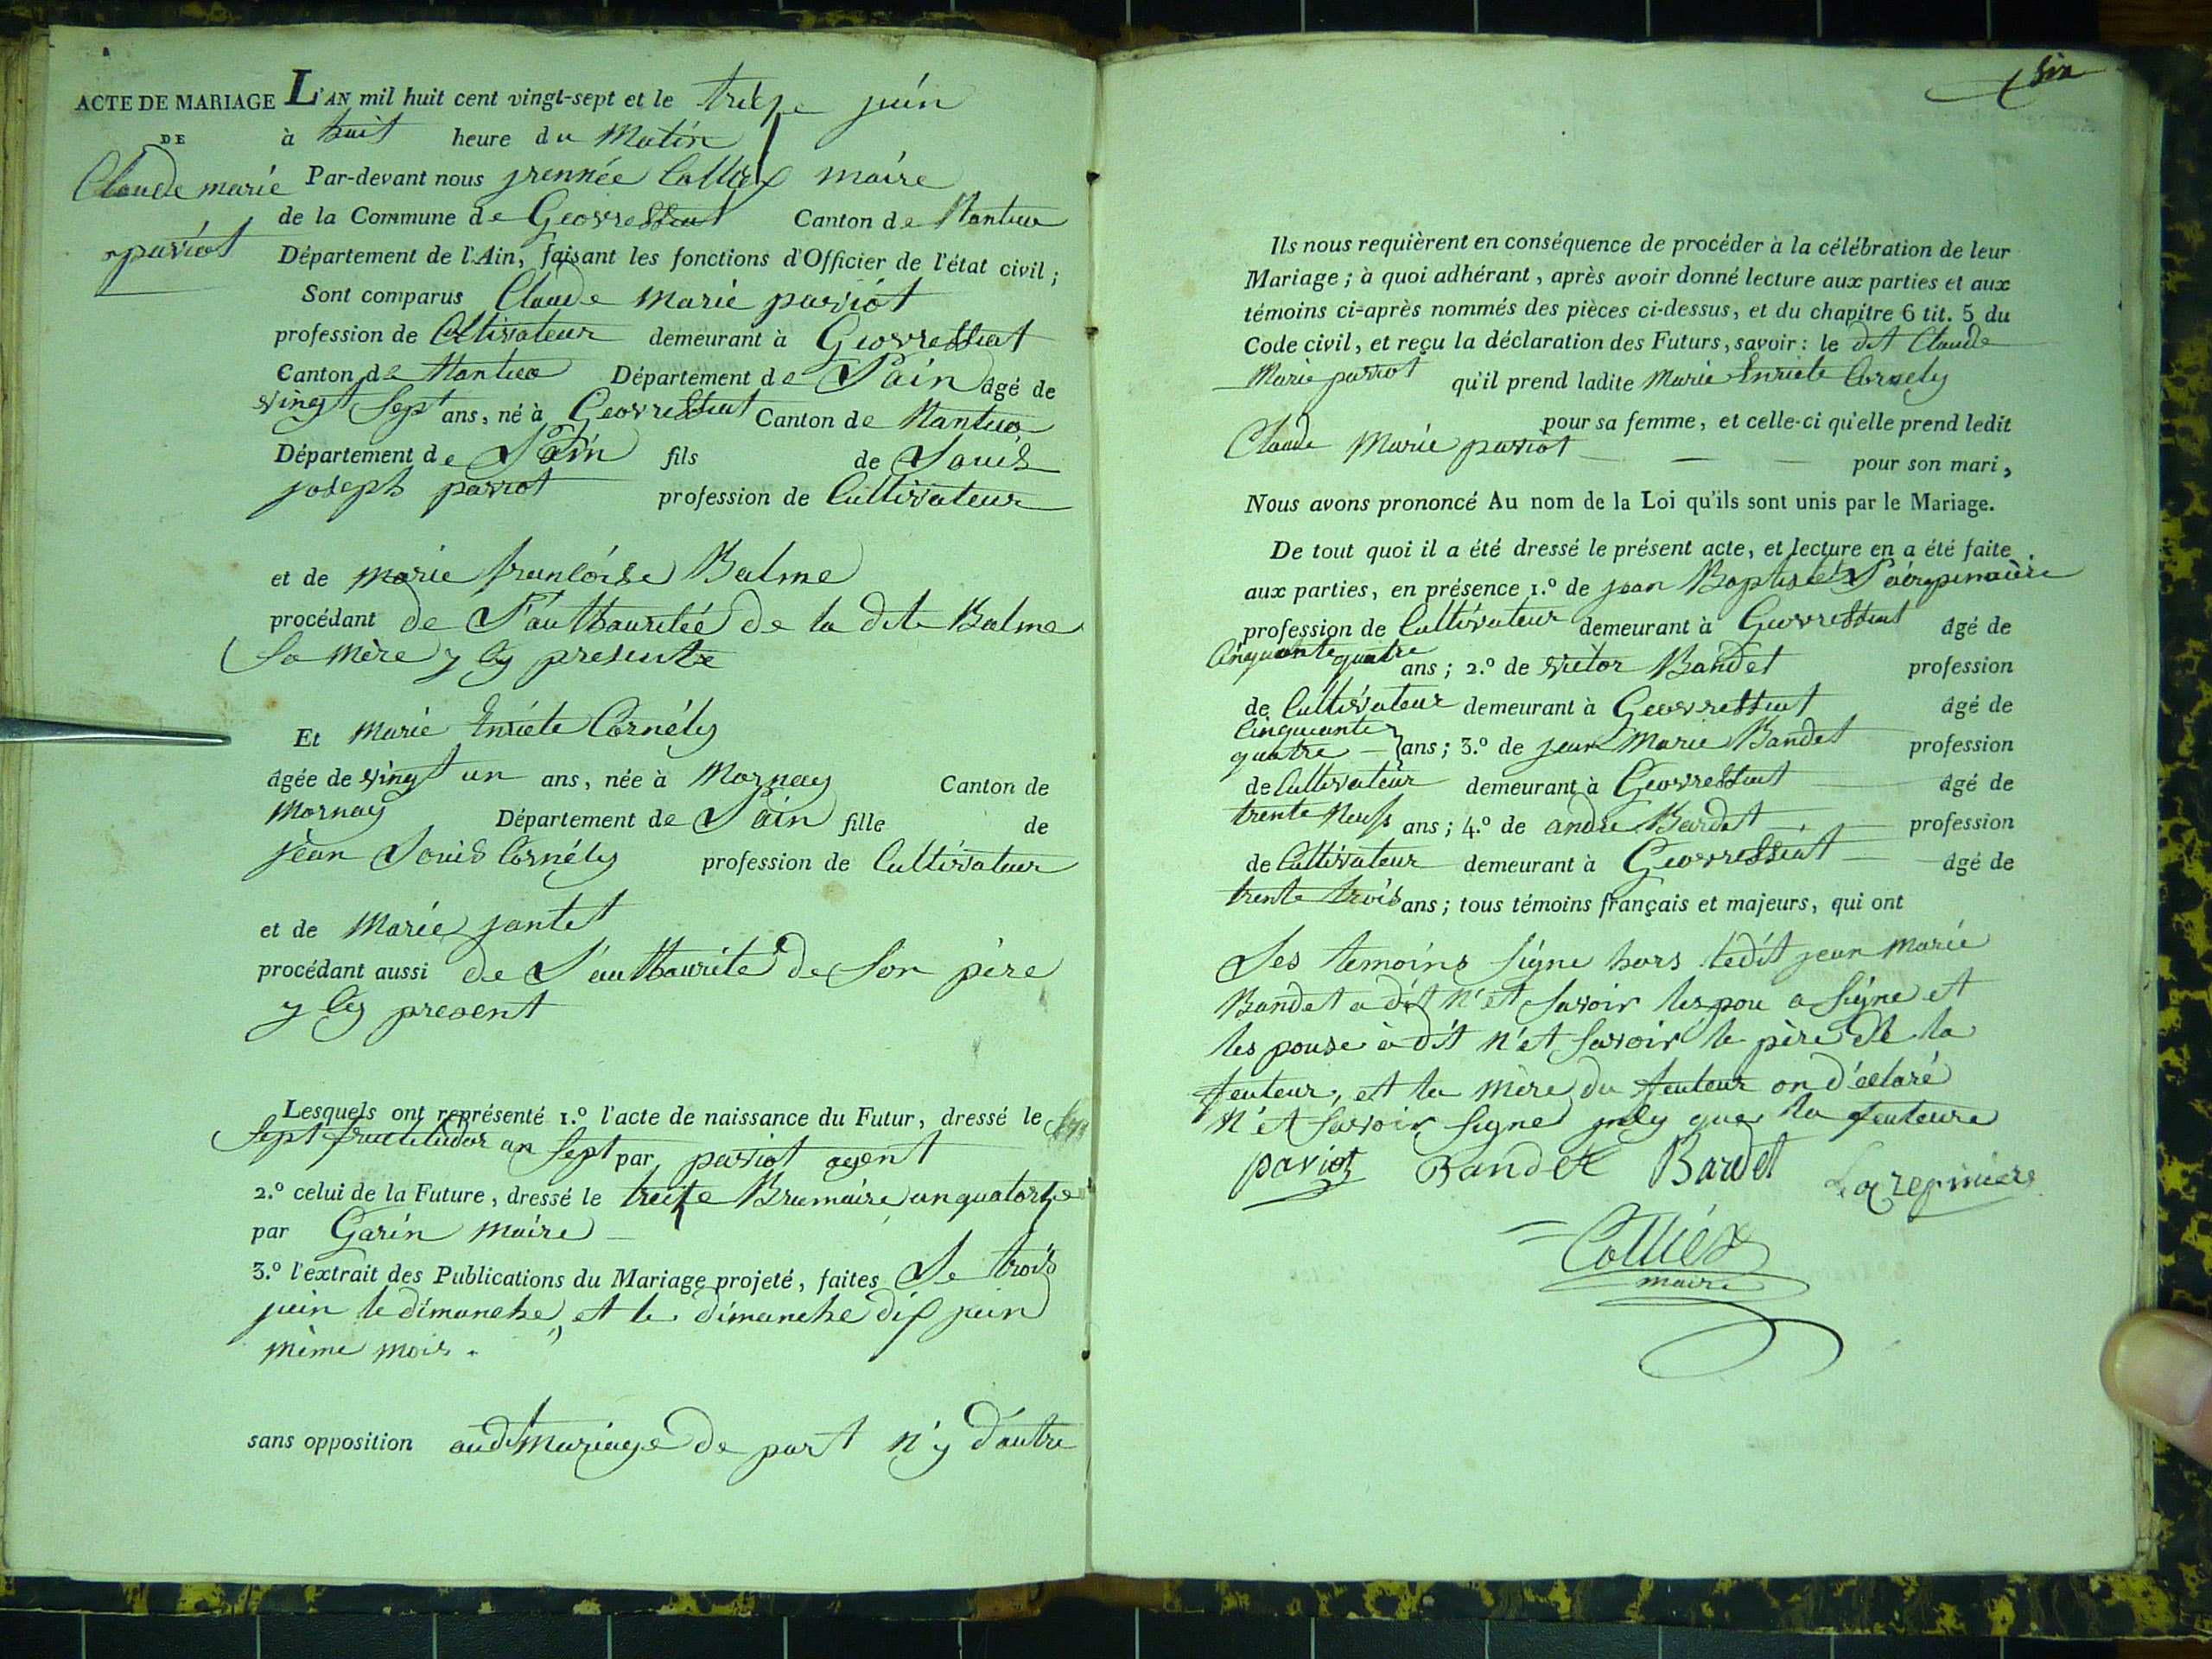 ACTE DE MARIAGE L'AN mil huit cent vingt-sept et le treize juin
DE à huit heure du Matin
Claude marie Par-devant nous jrennée Colliex maire
de la Commune de Geovressiat Canton de Nantua
paviot Département de l'Ain, faisant les fonctions d'Officier de l'état civil ;
Sont comparus Claude Marie paviot
profession de Cultivateur demeurant à Geovressiat
Canton de Nantua Département de L'ain âgé de
vingt sept ans, né à Geovressiat Canton de Nantua
Département de L'ain fils de Louis
joseph paviot profession de Cultivateur
et de marie francóise Balme
procédant de L'authauritée de la dite Balme
Sa mère y cy presente
Et Marie Enriete Cornély
âgée de vingt un ans, née à Mornay Canton de
Mornay Département de L'ain fille de
jean Louis Cornély profession de Cultivateur
et de Marie jantet
procédant aussi de L'authaurité de Son père
y cy present
Lesquels ont représenté 1.º l'acte de naissance du Futur, dressé le
Sept fructidor an Sept par paviot agent
2.º celui de la Future, dressé le treize Brumaire an quatorze
par Garin maire
3.º l'extrait des Publications du Mariage projeté, faites Le trois
juin le dimanche, et le dimanche dix juin
même mois.
sans opposition audit mariage de part n'y d'autre
six
Ils nous requièrent en conséquence de procéder à la célébration de leur
Mariage ; à quoi adhérant, après avoir donné lecture aux parties et aux
témoins ci-après nommés des pièces ci-dessus, et du chapitre 6 tit. 5 du
Code civil, et reçu la déclaration des Futurs, savoir : le dit Claude
Marie paviot qu'il prend ladite Marie Enriete Cornely
pour sa femme, et celle-ci qu'elle prend ledit
Claude Marie paviot pour son mari,
Nous avons prononcé Au nom de la Loi qu'ils sont unis par le Mariage.
De tout quoi il a été dressé le présent acte, et lecture en a été faite
aux parties, en présence 1.º de jean Baptiste
profession de Cultivateur demeurant à Geovressiat âgé de
Cinquante quatre ans ; 2.º de victor Bandet profession
de Cultivateur demeurant à Geovressiat âgé de
Cinquante
quatre ans ; 3.º de jean Marie Bandet profession
de Cultivateur demeurant à Geovressiat âgé de
trente neuf ans ; 4.º de andré Bardet profession
de Cultivateur demeurant à Geovressiat âgé de
trente trois ans ; tous témoins français et majeurs, qui ont
Les temoins Signe hors ledit jean marie
Bandet a dit n'et Savoir lespou a Signe et
les pouse à dit n'et Savoir le père de la
feuteur, et la mère du feuteur on déclaré
n'et Savoir Signe que la feuteure
paviot Bandet Bardet
Colliex
maire